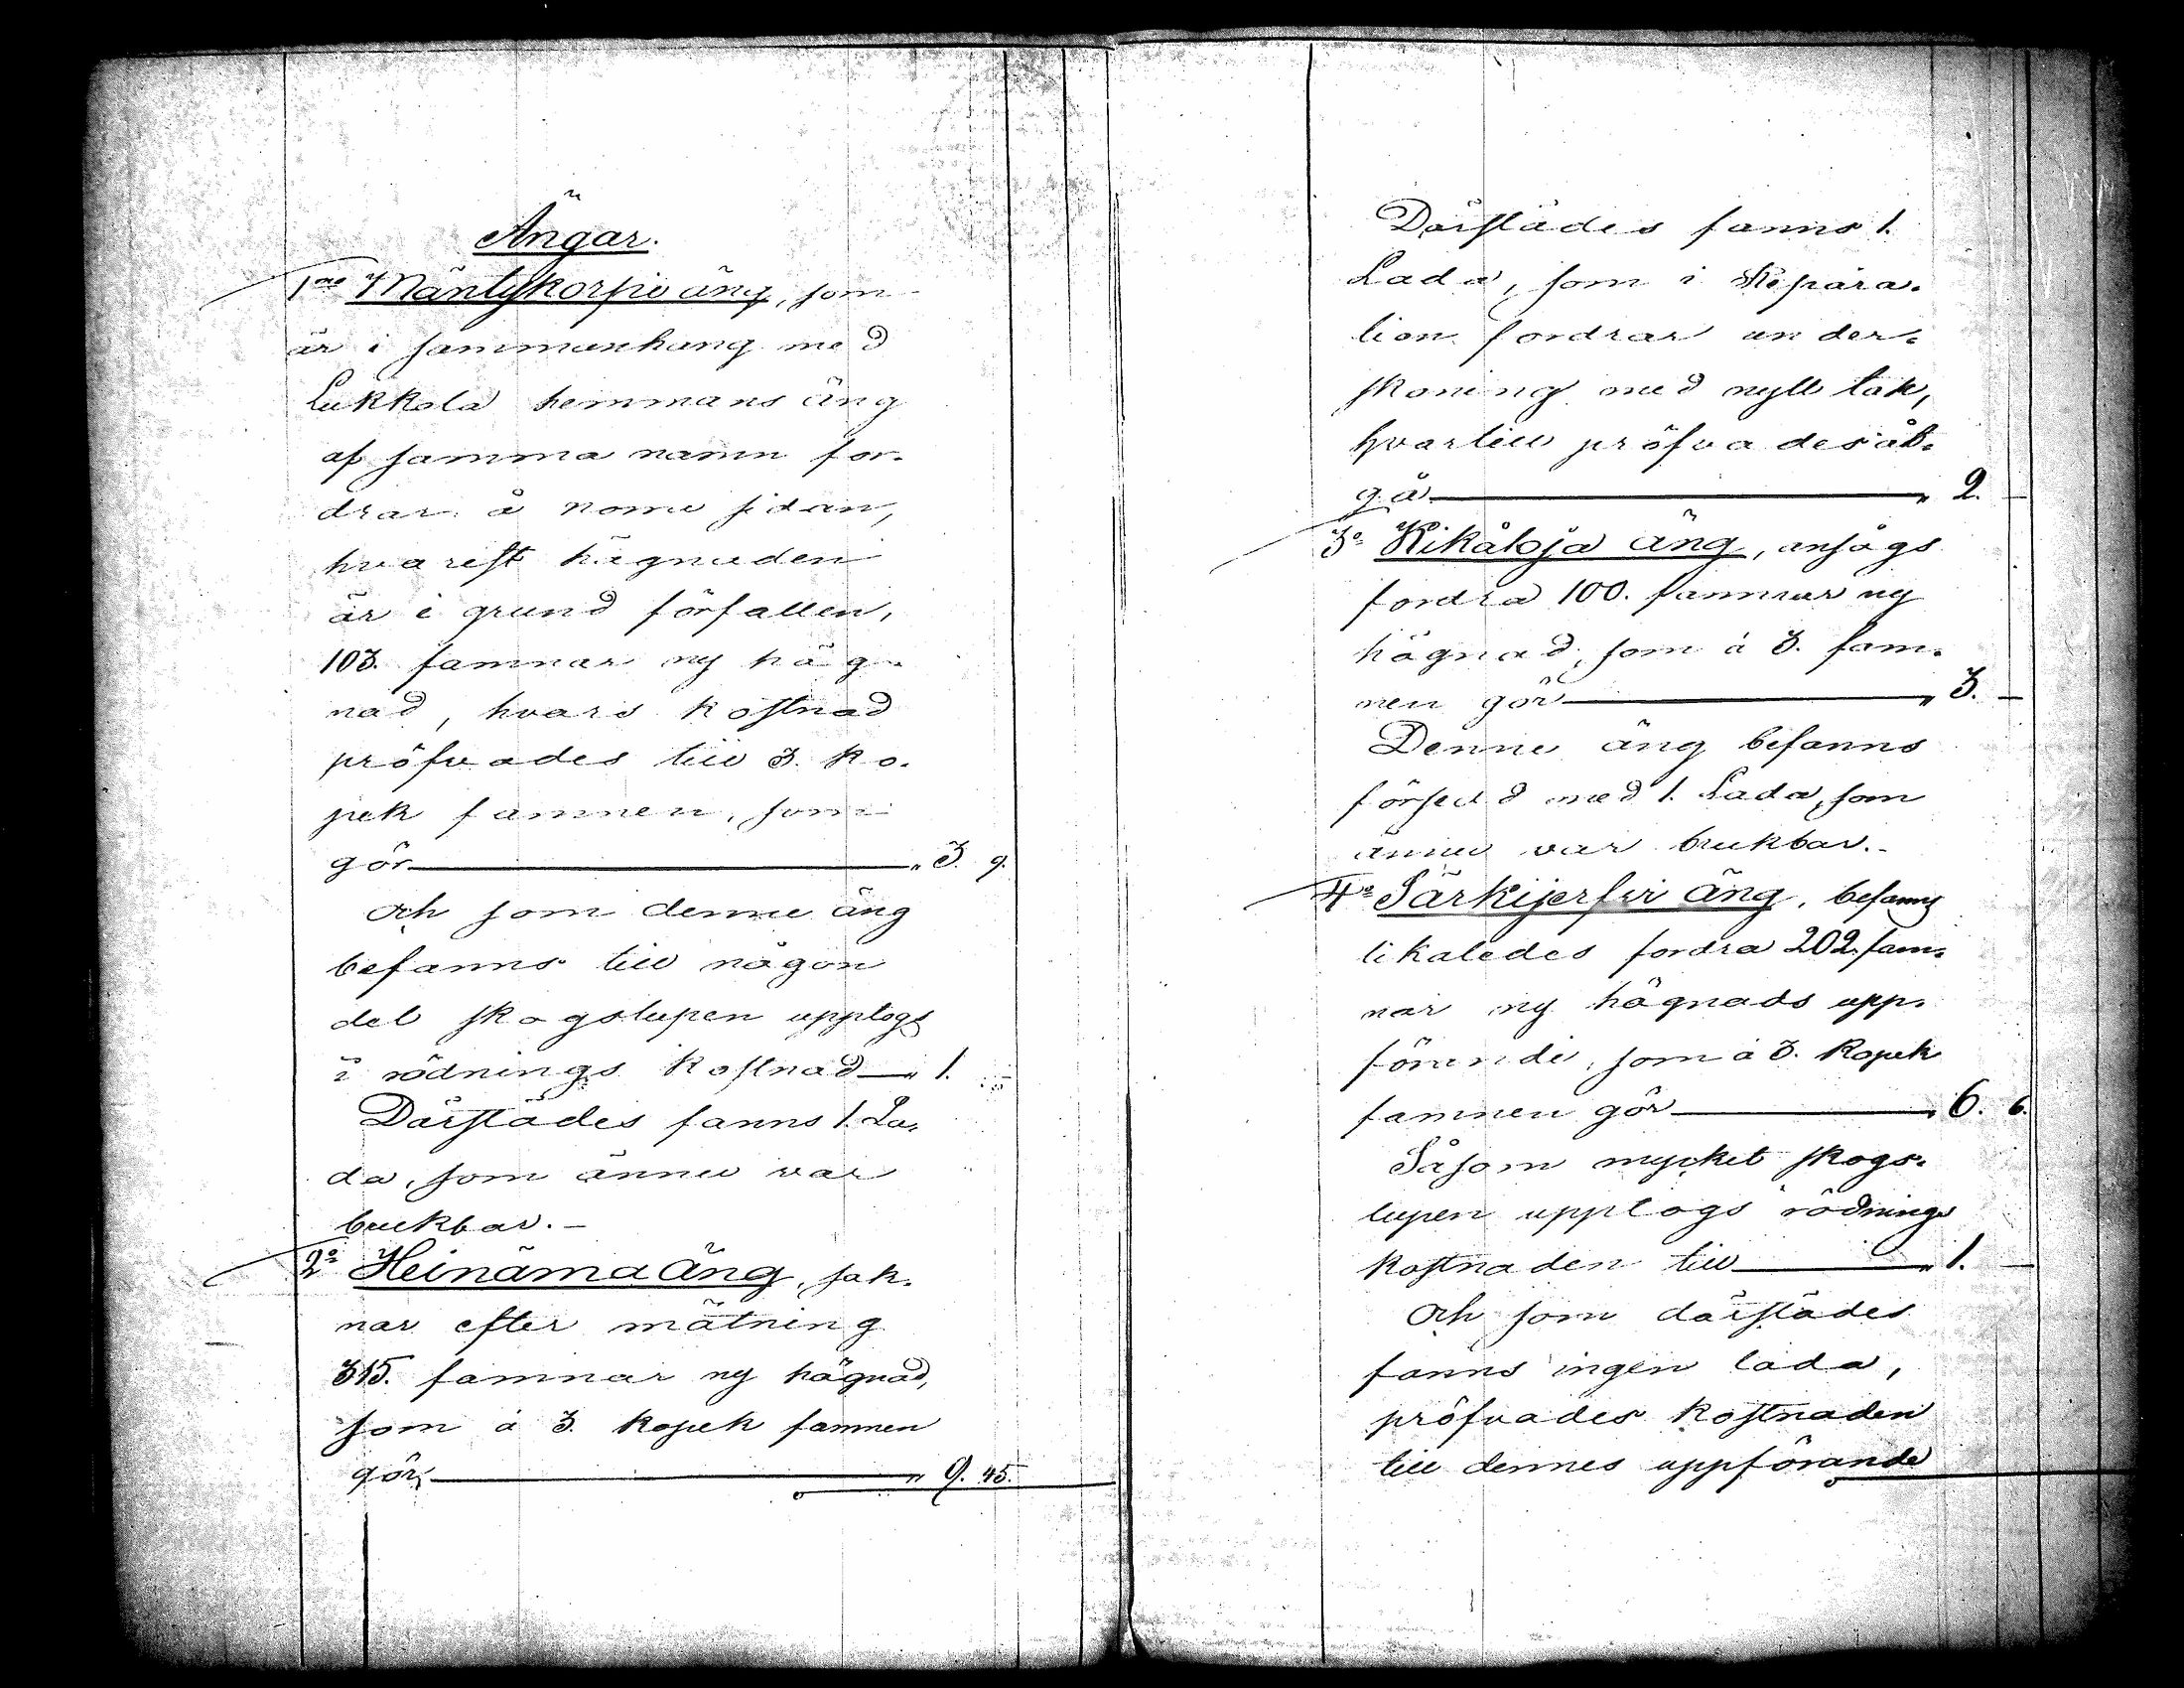 Ängar.
1mo Mäntykorpio äng, som
är i sammanhang med
Lukkala hemmans äng
af samma namn for-
drar å norra sidan,
hvarest hägnaden
är i grund förfallen,
103. famnar ny häg-
nad, hvars kostnad
pröfvades till 3. ko-
pek famnen, som
gör " 3. 9.
Och som denne äng
befanns till någon
del skogslupen upptogs
i rödnings kostnad " 1. -
Därstädes fanns 1. La-
da, som ännu var
brukbar. -
2o Heinäma Äng, sak-
nar efter mätning
315. famnar ny hägnad,
som á 3. kopek famnen
gör " 9. 45.
Därstädes fanns 1.
Lada, som i Repara-
tion fordrar under-
skoning med nytt tak,
hvartill pröfvades åt-
gå " 2. -
3o Kikåloja äng, ansågs
fordra 100. famnar ny
hägnad, som á 3. fam-
nen gör " 3. -
Denne äng befanns
försedd med 1. Lada, som
ännu var brukbar. -
4o Särkijerfvi Äng, befanns
likaledes fordra 202. fam-
nar ny hägnads upp-
förande, som á 3. Kopek
famnen gör " 6. 6.
Såsom mycket skogs-
lupen upptogs rödnings
kostnaden till " 1. -
Och som därstädes
fanns ingen lada,
pröfvades kostnaden
till dennes uppförande